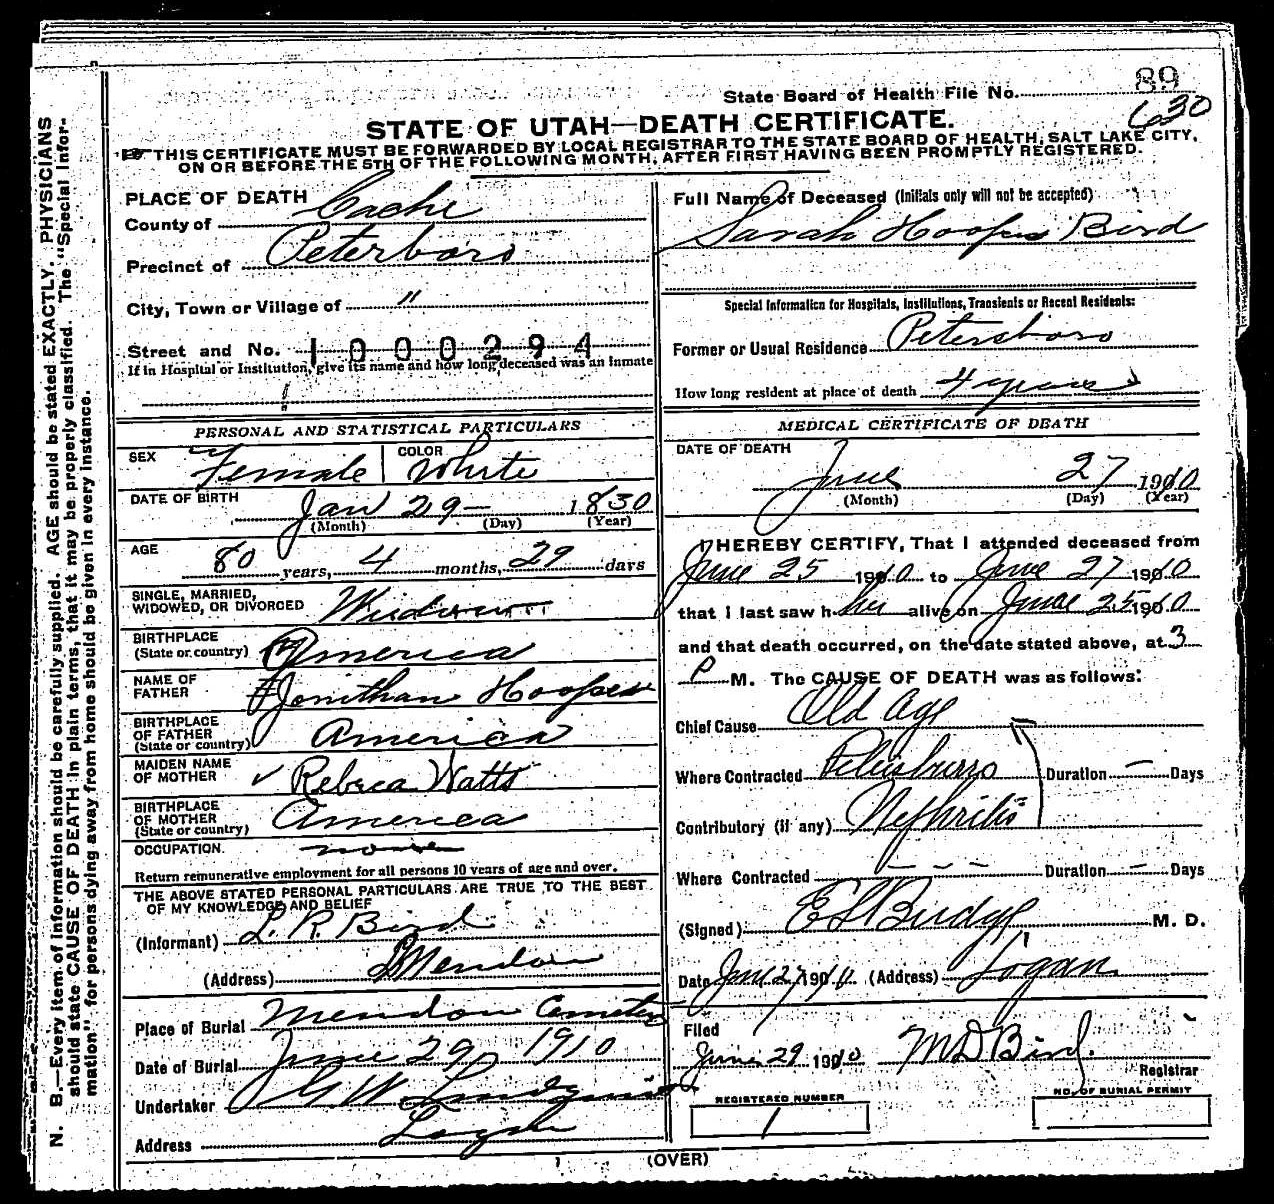 89
State Board of Health File No.
630
STATE OF UTAH—DEATH CERTIFICATE.
THIS CERTIFICATE MUST BE FORWARDED BY LOCAL REGISTRAR TO THE STATE BOARD OF HEALTH, SALT LAKE CITY,
ON OR BEFORE THE 5TH OF THE FOLLOWING MONTH, AFTER FIRST HAVING BEEN PROMPTLY REGISTERED.
N. B.—Every item of information should be carefully supplied. AGE should be stated EXACTLY. PHYSICIANS
should state CAUSE OF DEATH in plain terms, that it may be properly classified. The "Special Infor-
mation" for persons dying away from home should be given in every instance.
PLACE OF DEATH
County of Cache
Precinct of Peterboro
City, Town or Village of "
Street and No. 1000294
If in Hospital or Institution, give its name and how long deceased was an Inmate
PERSONAL AND STATISTICAL PARTICULARS
SEX Female COLOR White
DATE OF BIRTH Jan 29 — 1830
(Month) (Day) (Year)
AGE 80 years, 4 months, 29 days
SINGLE, MARRIED,
WIDOWED, OR DIVORCED Widow
BIRTHPLACE
(State or country) America
NAME OF
FATHER Jonithan Hooper
BIRTHPLACE
OF FATHER
(State or country) America
MAIDEN NAME
OF MOTHER Rebeca Watts
BIRTHPLACE
OF MOTHER
(State or country) America
OCCUPATION. none
Return remunerative employment for all persons 10 years of age and over.
THE ABOVE STATED PERSONAL PARTICULARS ARE TRUE TO THE BEST
OF MY KNOWLEDGE AND BELIEF
(Informant) L. R. Bird
(Address) Mendon
Place of Burial Mendon Cemetery
Date of Burial June 29, 1910
Undertaker G. W. Lindquist
Address Logan
Full Name of Deceased (Initials only will not be accepted)
Sarah Hooper Bird
Special Information for Hospitals, Institutions, Transients or Recent Residents:
Former or Usual Residence Petersboro
How long resident at place of death 4 years
MEDICAL CERTIFICATE OF DEATH
DATE OF DEATH
June 27 1910
(Month) (Day) (Year)
I HEREBY CERTIFY, That I attended deceased from
June 25 1910 to June 27 1910
that I last saw her alive on June 25 1910
and that death occurred, on the date stated above, at 3
P M. The CAUSE OF DEATH was as follows:
Chief Cause Old Age
Where Contracted Petersburro Duration — Days
Contributory (if any) Nephritis
Where Contracted — — — Duration — Days
(Signed) E S Budge M. D.
Date June 27, 1910 (Address) Logan
Filed
June 29 1910 M D Bird. Registrar
REGISTERED NUMBER
1
NO. OF BURIAL PERMIT
(OVER)